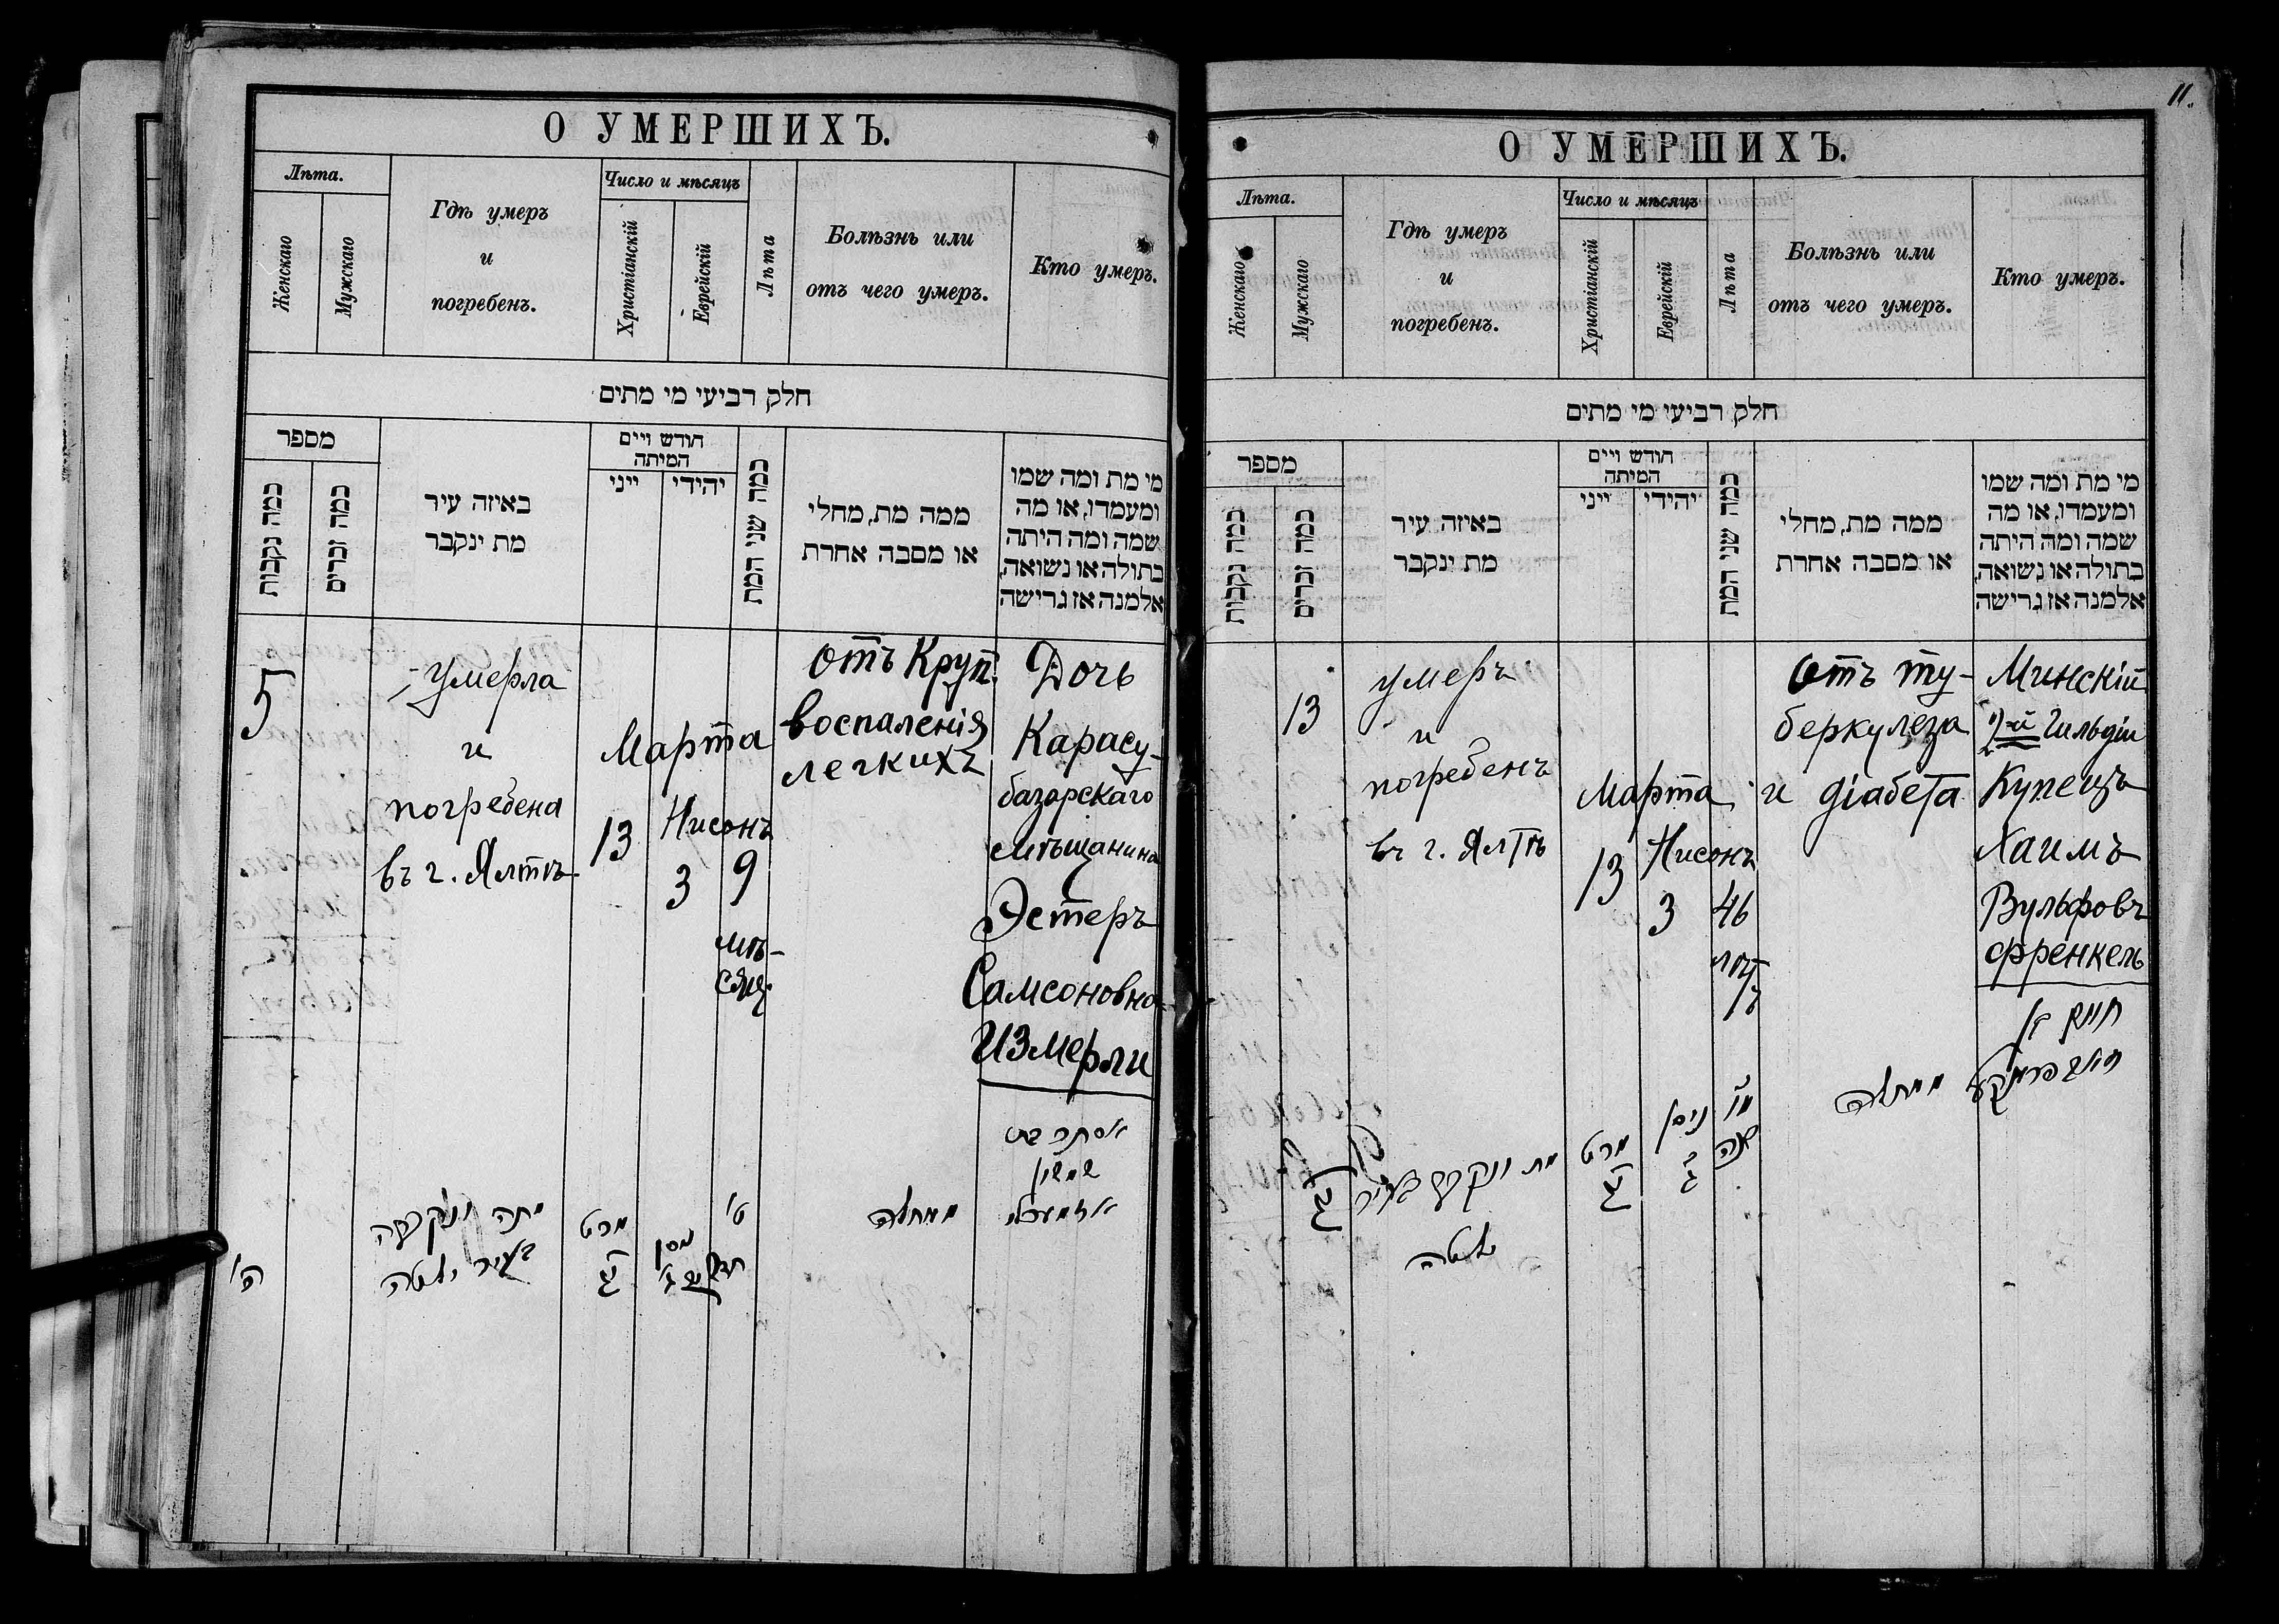 О УМЕРШИХЪ.
Лѣта.
Женскаго
Мужскаго
Гдѣ умеръ
и
погребенъ.
Число и мѣсяцъ
Христіанскій
Еврейскій
Лѣта
Болѣзнь или
отъ чего умеръ.
Кто умеръ.
חלק רביעי מי מתים
מספר
כמה נקבות
כמה זכרים
באיזה עיר
מת ינקבר
חודש ויים
המיתה
ייני
יהידי
כמה שני המת
ממה מת, מחלי
או מסבה אחרת
מי מת ומה שמו
ומעמדו, או מה
שמה ומה היתה
בתולה או נשואה,
אלמנה אז גרישה
5
умерла
и
погребена
въ г. Ялтѣ
Марта
13
Нисонъ
3
9
мѣ-
сяц.
отъ Круп.
воспаленія
легкихъ
Дочь
Карасу-
базарскаго
мѣщанина
Эстеръ
Самсоновна
Измерли
אסתר בת
שמשון
איזמערלי
ממחלה
ט'
חדש
ניסן
ג'
מרט
יג
מתה ונקברה
בעיר יאלטה
ה'
11.
О УМЕРШИХЪ.
Лѣта.
Женскаго
Мужскаго
Гдѣ умеръ
и
погребенъ.
Число и мѣсяцъ
Христіанскій
Еврейскій
Лѣта
Болѣзнь или
отъ чего умеръ.
Кто умеръ.
חלק רביעי מי מתים
מספר
כמה נקבות
כמה זכרים
באיזה עיר
מת ינקבר
חודש ויים
המיתה
ייני
יהידי
כמה שני המת
ממה מת, מחלי
או מסבה אחרת
מי מת ומה שמו
ומעמדו, או מה
שמה ומה היתה
בתולה או נשואה,
אלמנה אז גרישה
13
умеръ
и
погребенъ
въ г. Ялтѣ
Марта
13
Нисонъ
3
46
лѣт
ъ
отъ ту-
беркулеза
и діабета
Минскій
1)-й Гильдіи
Купецъ
Хаимъ
Вульфовъ
Френкель
חיים בן
וואלף פרענקעל
ממחלה
מו
שנה
ניסן
ג
מרט
יג
מת ונקבר בעיר
יאלטה
יג